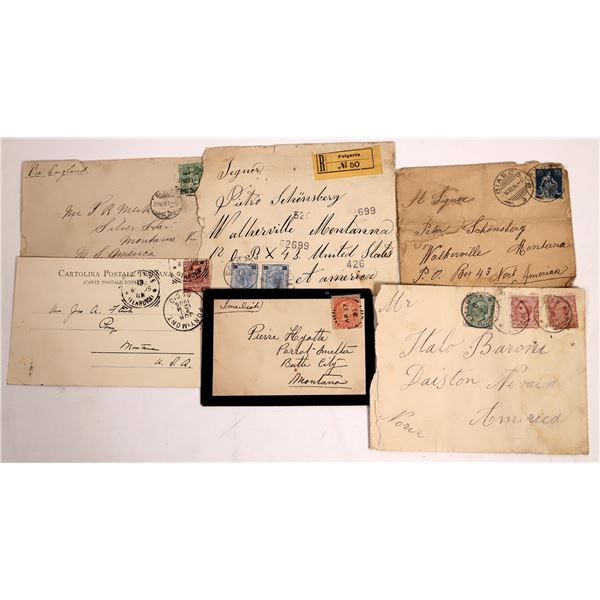 Via England
Mr P. R. Meek
Silver Star
Montana
U. S. America
R
Folgaria
№ 50
Signor
Pietro Schönsberg
Walkerville Montanna
P. O. B X 43 United States
et america
52
699
F2699
426
M Signor
Schönsberg
Walkerville Montana
P. O. Box 43 Nort America
CARTOLINA POSTALE ITALIANA
(CARTE POSTALE D'ITALIE)
Montana
U. S. A.
PONY, MONT
Pierre Hyatte
Parrot Smelter
Butte City
Montana
Mr
Italo Baroni
Daiston Nevada
America